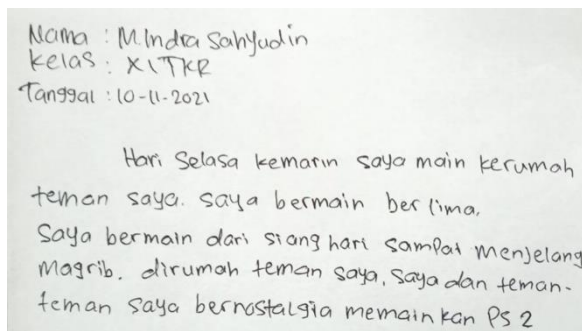 Nama : M.Indra Sahyudin
Kelas : XI TKR
Tanggal : 10-11-2021
Hari Selasa kemarin saya main kerumah
teman saya. saya bermain berlima.
Saya bermain dari siang hari sampai menjelang
magrib. dirumah teman saya, saya dan teman-
teman saya bernostalgia memainkan PS 2